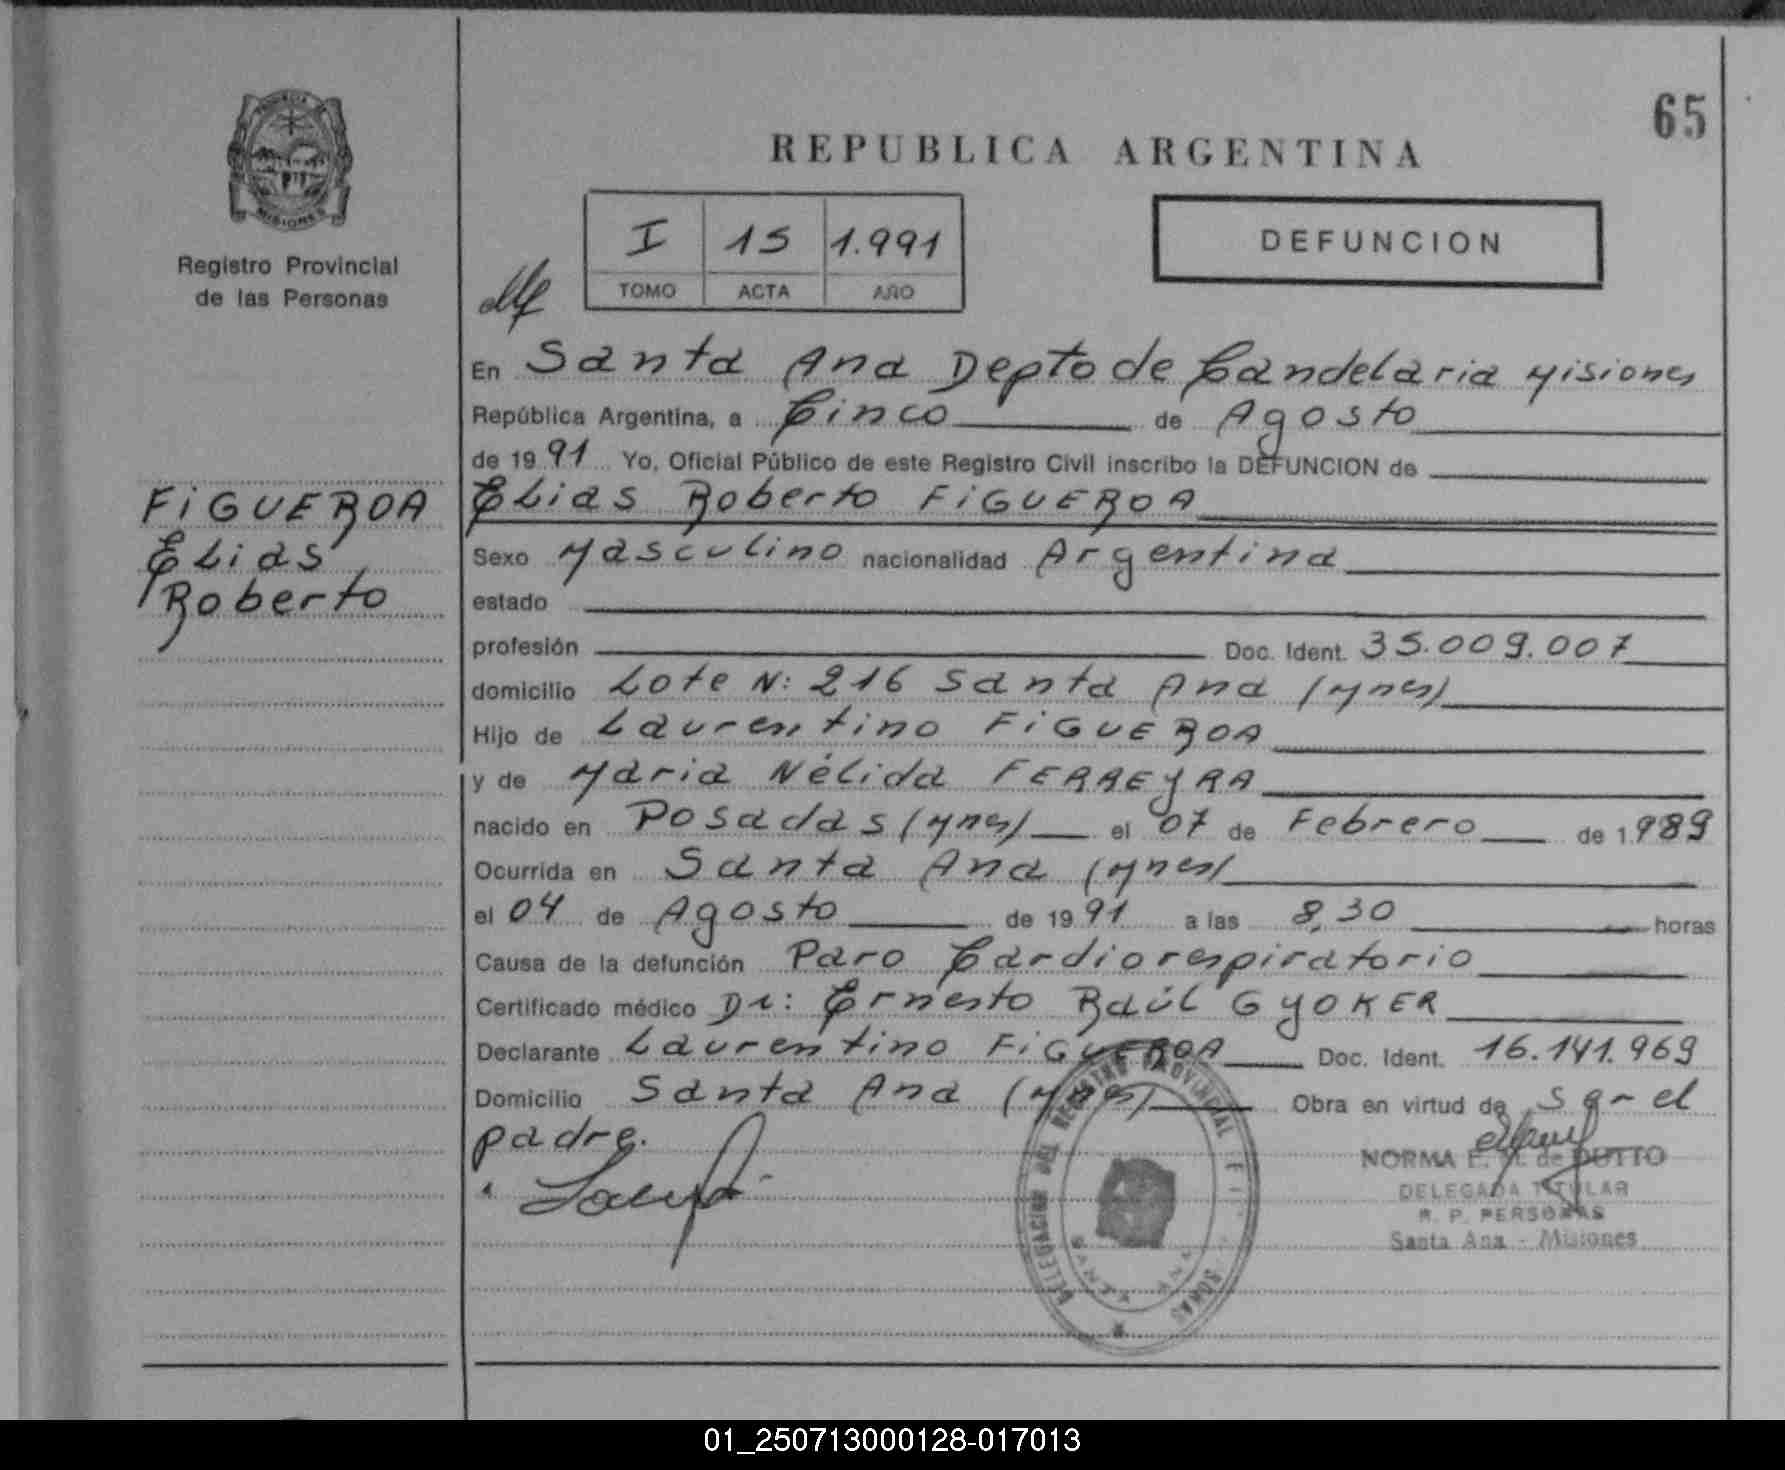 65
REPUBLICA ARGENTINA
PROVINCIA DE
MISIONES
Registro Provincial
de las Personas
I 15 1.991
TOMO ACTA AÑO
DEFUNCION
En Santa Ana Depto de Candelaria Misiones
República Argentina, a Cinco de Agosto
de 1991 Yo, Oficial Público de este Registro Civil inscribo la DEFUNCION de
FiGUEROA
Elias
Roberto
Elias Roberto FiGUEROA
Sexo Masculino nacionalidad Argentina
estado
profesión Doc. Ident. 35.009.007
domicilio Lote N: 216 Santa Ana (Mnes)
Hijo de Laurentino FiGUEROA
y de Maria Nélida FERREYRA
nacido en Posadas (Mnes) el 07 de Febrero de 1.989
Ocurrida en Santa Ana (Mnes)
el 04 de Agosto de 1991 a las 8,30 horas
Causa de la defunción Paro Cardiorespiratorio
Certificado médico Dr: Ernesto Raúl GYOKER
Declarante Laurentino FiGUEROA Doc. Ident. 16.141.969
Domicilio Santa Ana (Mnes) Obra en virtud de ser el
padre.
NORMA E. de DUTTO
DELEGADA TITULAR
R. P. PERSONAS
Santa Ana - Misiones
DELEGACION DEL REGISTRO PROVINCIAL
SANTA ANA
01_250713000128-017013